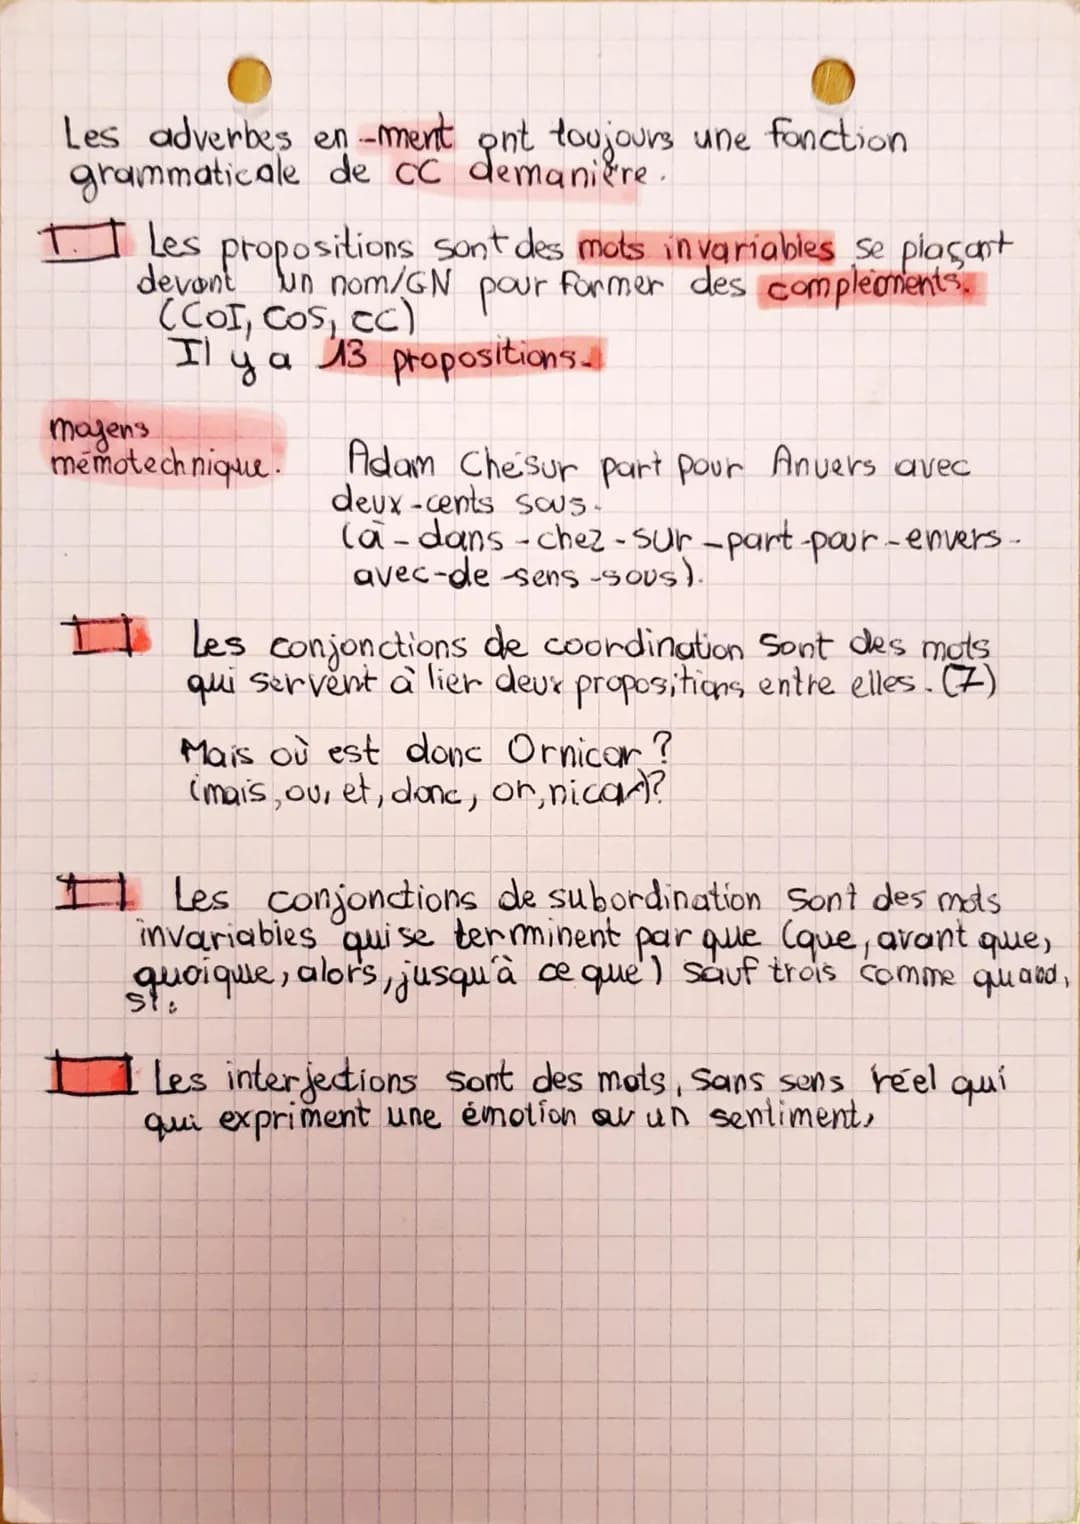 Les adverbes en -mment ont toujours une fonction
grammaticale de CC demanière.
I. Les propositions sont des mots invariables se plaçant
devant un nom/GN pour former des compléments.
(COI, COS, CC)
Il y a 13 propositions.
moyens
mémotechnique.
Adam Chésur part pour Anvers avec
deux-cents sous.
(à - dans - chez - sur - part - pour - envers -
avec - de - sens - sous).
Les conjonctions de coordination sont des mots
qui servent à lier deux propositions entre elles. (7)
Mais où est donc Ornicar ?
(mais, ou, et, donc, or, nicar)?
Les conjonctions de subordination sont des mots
invariables quise terminent par que (que, avant que,
quoique, alors, jusqu'à ce que) sauf trois comme quand,
si.
Les interjections sont des mots, sans sens réel qui
qui expriment une émotion ou un sentiment,